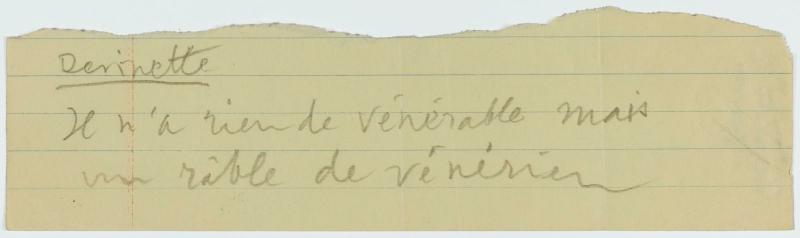 Devinette
Il n'a rien de vénérable mais
un râble de vénérien